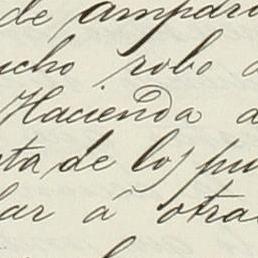 de ampar
ucho robo
Hacienda a
ta de los pu
lar á otra